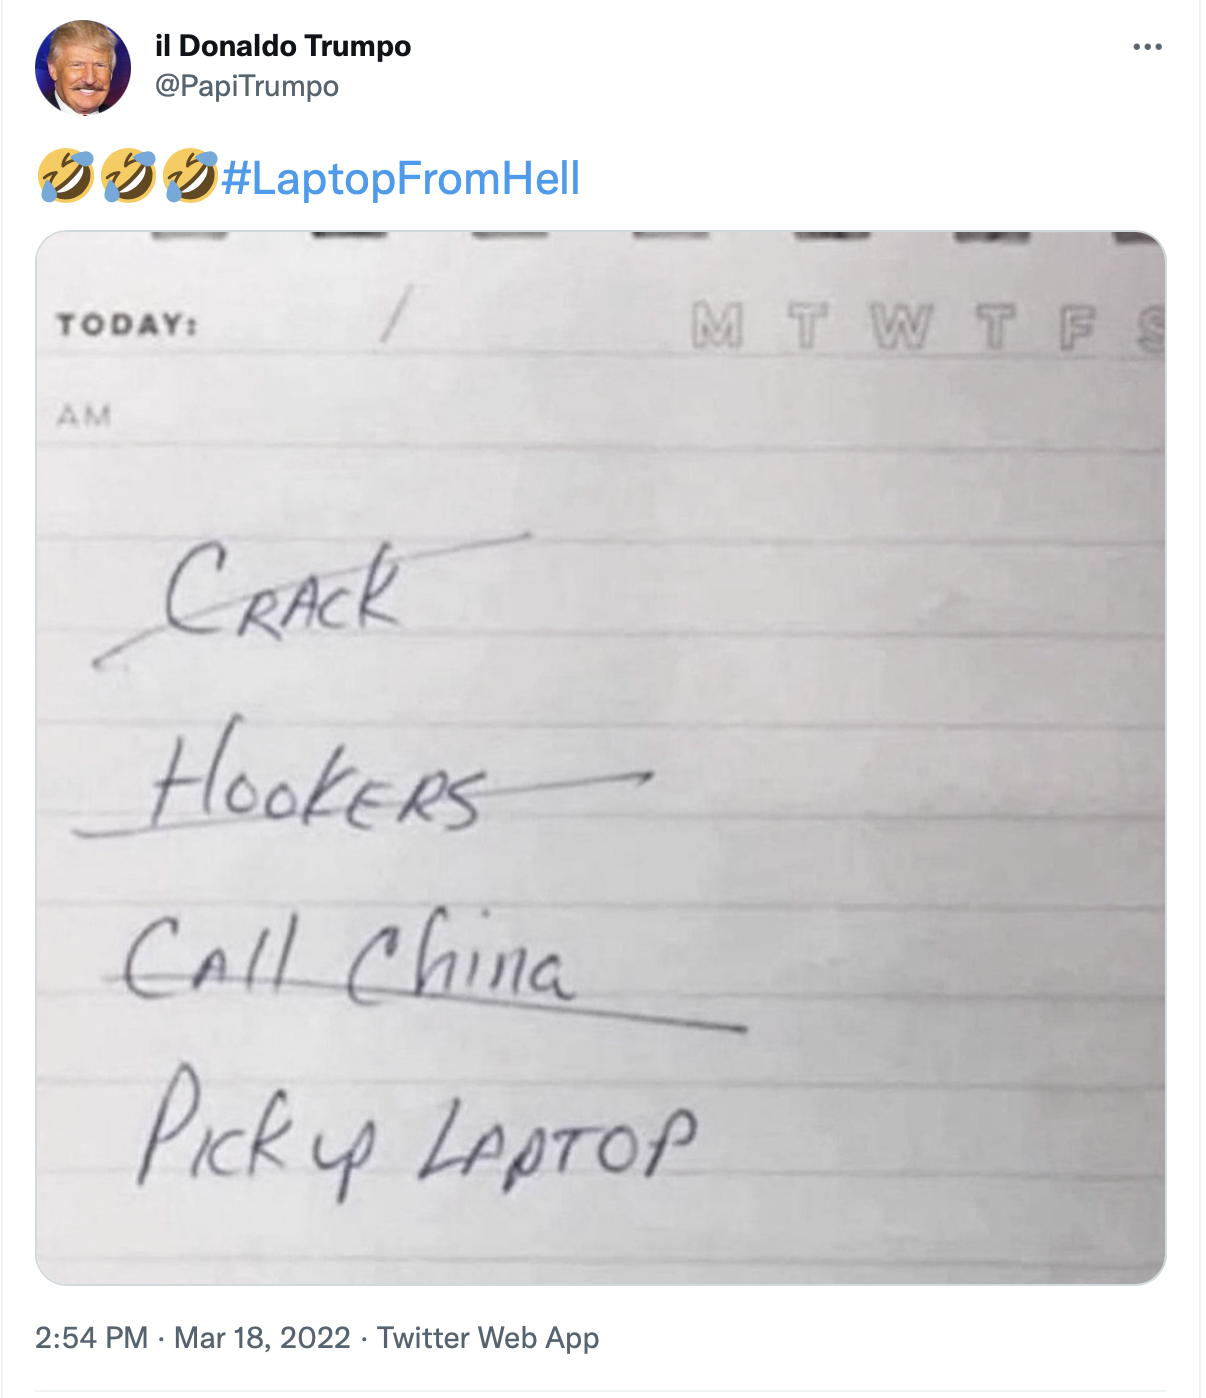 il Donaldo Trumpo
@PapiTrumpo
🤣🤣🤣#LaptopFromHell
TODAY: / M T W T F S
AM
CRACK
HOOKERS
CAll China
Pick up LAPTOP
2:54 PM · Mar 18, 2022 · Twitter Web App